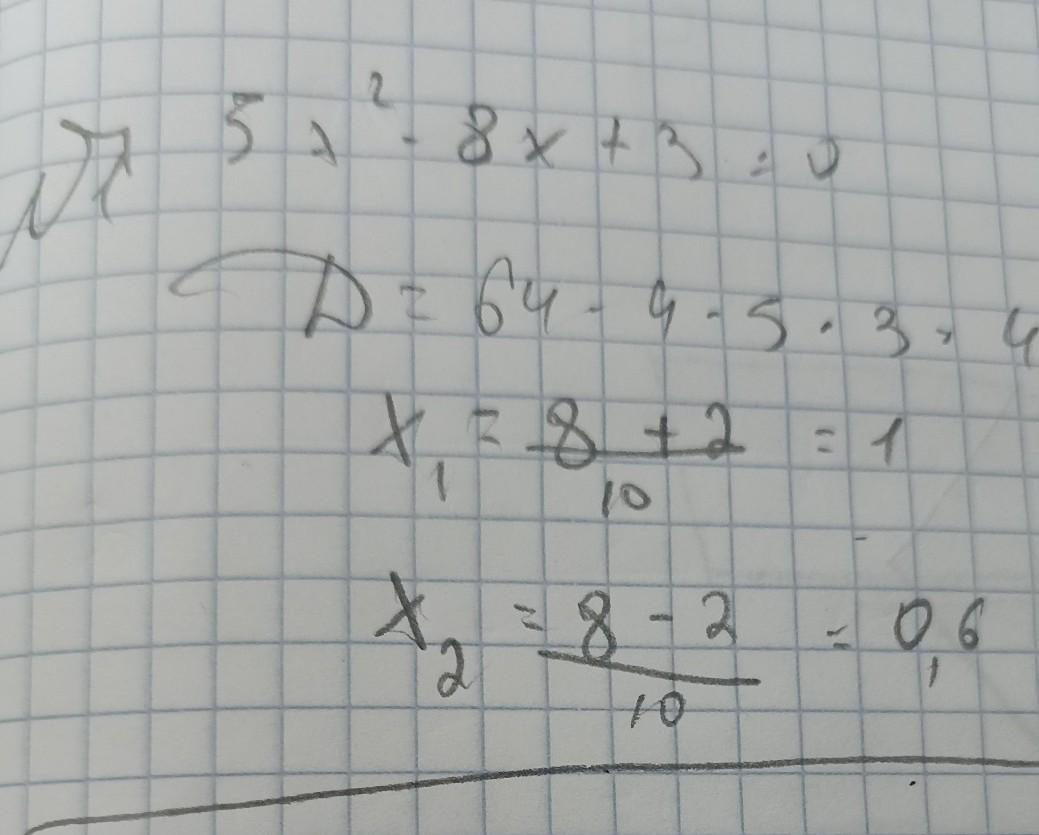 №7 5x² - 8x + 3 = 0
D = 64 - 4 · 5 · 3 = 4
x₁ = (8 + 2)/10 = 1
x₂ = (8 - 2)/10 = 0,6